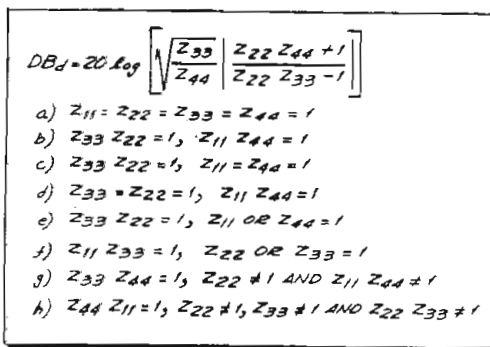 DBd = 20 log [ √(Z33/Z44) | (Z22 Z44 + 1)/(Z22 Z33 - 1) | ]
a) Z11 = Z22 = Z33 = Z44 = 1
b) Z33 Z22 = 1, Z11 Z44 = 1
c) Z33 Z22 = 1, Z11 = Z44 = 1
d) Z33 = Z22 = 1, Z11 Z44 = 1
e) Z33 Z22 = 1, Z11 OR Z44 = 1
f) Z11 Z33 = 1, Z22 OR Z33 = 1
g) Z33 Z44 = 1, Z22 ≠ 1 AND Z11 Z44 ≠ 1
h) Z44 Z11 = 1, Z22 ≠ 1, Z33 ≠ 1 AND Z22 Z33 ≠ 1